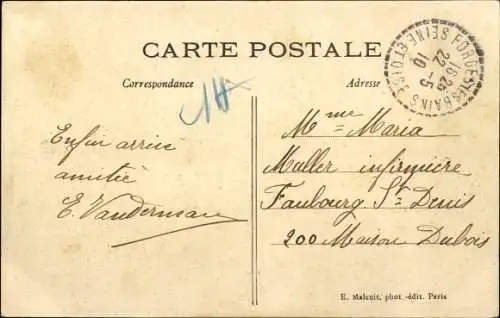 CARTE POSTALE
Correspondance
Adresse
FORGES-LES-BAINS
SEINE ET OISE
16 25
22 -5
10
Enfin arrivé
amitié
E. Vanderman
Mme Maria
Muller infirmière
Faubourg St Denis
200 Maison Dubois
E. Malcuit, phot.-édit. Paris